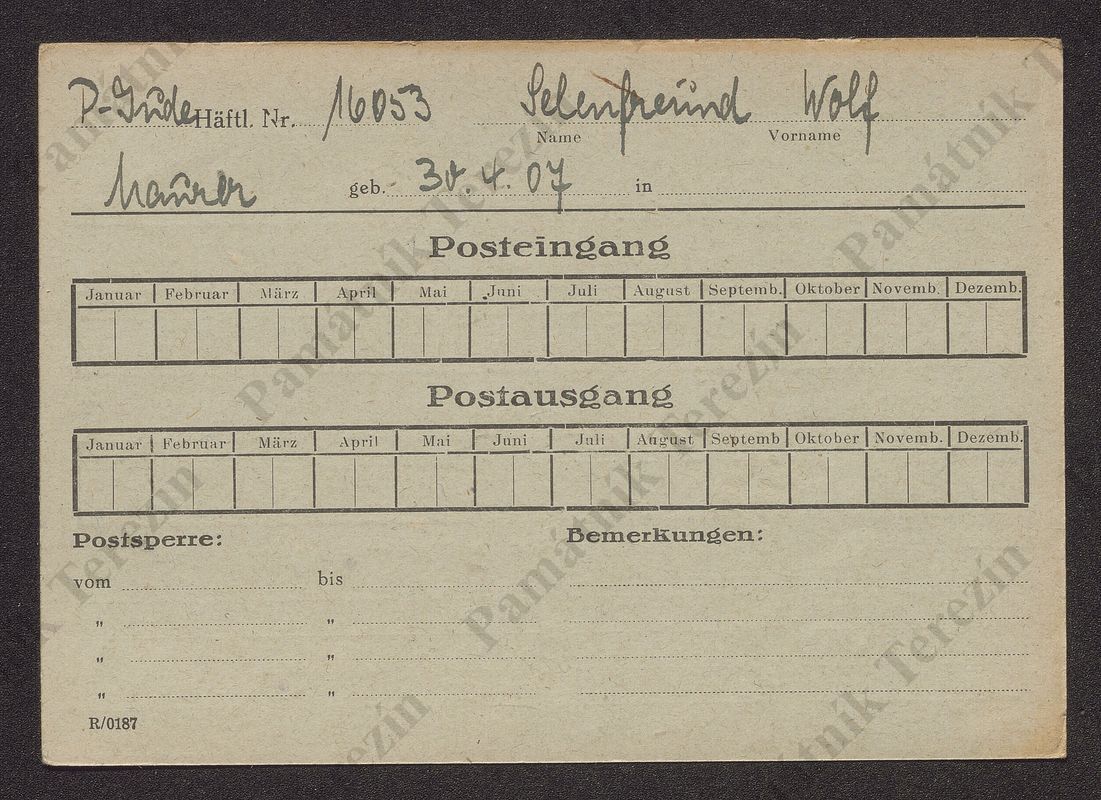 P-Jude Häftl. Nr. 16053 Selenfreund Wolf
Name Vorname
Maurer geb. 30. 4. 07 in
Posteingang
Januar Februar März April Mai Juni Juli August Septemb. Oktober Novemb. Dezemb.
Postausgang
Januar Februar März April Mai Juni Juli August Septemb Oktober Novemb. Dezemb.
Postsperre: Bemerkungen:
vom bis
" "
" "
" "
R/0187
Památník Terezín